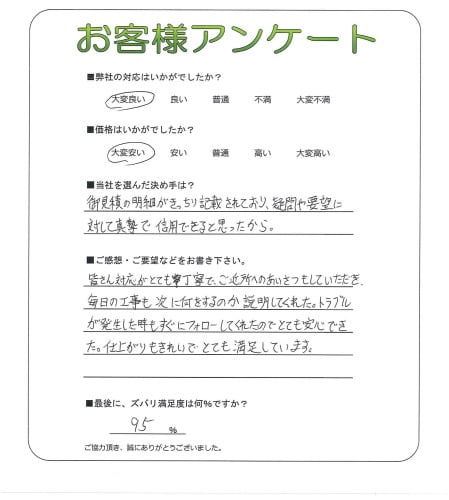 お客様アンケート
■弊社の対応はいかがでしたか？
大変良い 良い 普通 不満 大変不満
■価格はいかがでしたか？
大変安い 安い 普通 高い 大変高い
■当社を選んだ決め手は？
御見積の明細がきっちり記載されており、疑問や要望に
対して真摯で信用できると思ったから。
■ご感想・ご要望などをお書き下さい。
皆さん対応がとても丁寧で、ご近所へのあいさつもしていただき、
毎日の工事も次に何をするのか説明してくれた。トラブル
が発生した時もすぐにフォローしてくれたのでとても安心でき
た。仕上がりもきれいでとても満足しています。
■最後に、ズバリ満足度は何%ですか？
95 %
ご協力頂き、誠にありがとうございました。